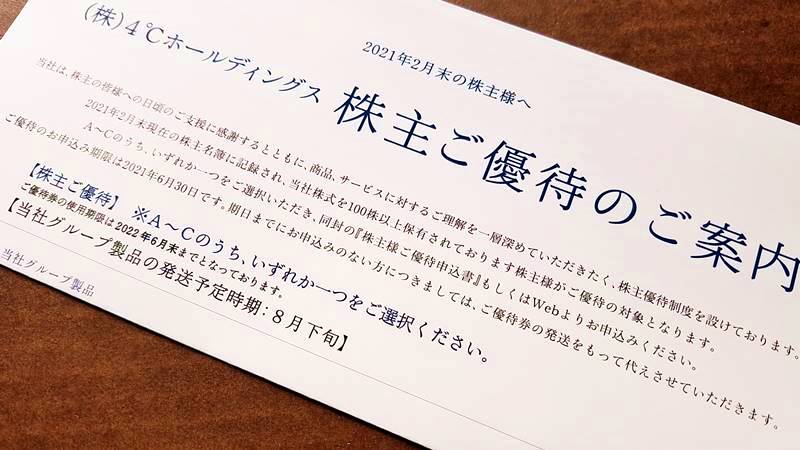 2021年2月末の株主様へ
(株)4℃ホールディングス 株主ご優待のご案内
当社は、株主の皆様への日頃のご支援に感謝するとともに、商品、サービスに対するご理解を一層深めていただきたく、株主優待制度を設けております。
2021年2月末現在の株主名簿に記録され、当社株式を100株以上保有されております株主様がご優待の対象となります。
A〜Cのうち、いずれか一つをご選択いただき、同封の『株主様ご優待申込書』もしくはWebよりお申込みください。
ご優待のお申込み期限は2021年6月30日です。期日までにお申込みのない方につきましては、ご優待券の発送をもって代えさせていただきます。
【株主ご優待】 ※A〜Cのうち、いずれか一つをご選択ください。
ご優待券の使用期限は2022年6月末までとなっております。
【当社グループ製品の発送予定時期：8月下旬】
当社グループ製品